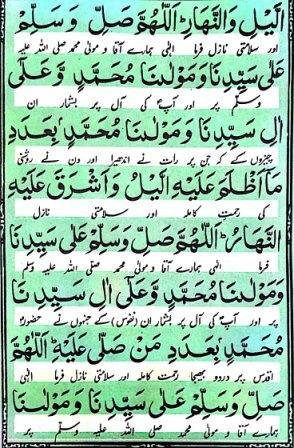 الَّيْلِ وَالنَّهَارِ اَللّٰهُمَّ صَلِّ وَسَلِّمْ
اور سلامتی نازل فرما الٰہی ہمارے آقا و مولیٰ محمد صلی اللہ علیہ
عَلٰى سَيِّدِنَا وَمَوْلٰىنَا مُحَمَّدٍ وَّعَلٰٓى
وسلم پر اور آپ کی آل پر بشمار ان
اٰلِ سَيِّدِنَا وَمَوْلٰىنَا مُحَمَّدٍ بِعَدَدِ
چیزوں کے کہ جن پر رات نے اندھیرا اور دن نے روشنی
مَآ اَظْلَمَ عَلَيْهِ الَّيْلُ وَاَشْرَقَ عَلَيْهِ
کی رحمت کاملہ اور سلامتی نازل
النَّهَارُ اَللّٰهُمَّ صَلِّ وَسَلِّمْ عَلٰى سَيِّدِنَا
فرما الٰہی ہمارے آقا و مولیٰ محمد صلی اللہ علیہ وسلم
وَمَوْلٰىنَا مُحَمَّدٍ وَّعَلٰٓى اٰلِ سَيِّدِنَا
پر اور آپ کی آل پر بشمار ان (نفوس) کے جنہوں نے حضور
مُحَمَّدٍ بِعَدَدِ مَنْ صَلّٰى عَلَيْهِ ط اَللّٰهُمَّ
اقدس پر درود بھیجا رحمت کاملہ اور سلامتی نازل فرما الٰہی
صَلِّ وَسَلِّمْ عَلٰى سَيِّدِنَا وَمَوْلٰىنَا
ہمارے آقا و مولیٰ محمد صلی اللہ علیہ وسلم پر